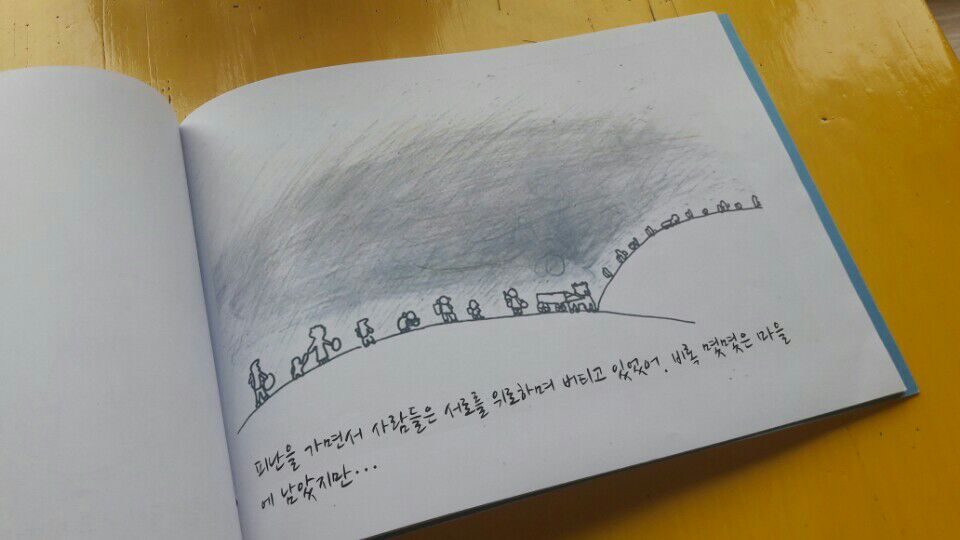 피난을 가면서 사람들은 서로를 위로하며 버티고 있었어. 비록 몇몇은 마을
에 남았지만...